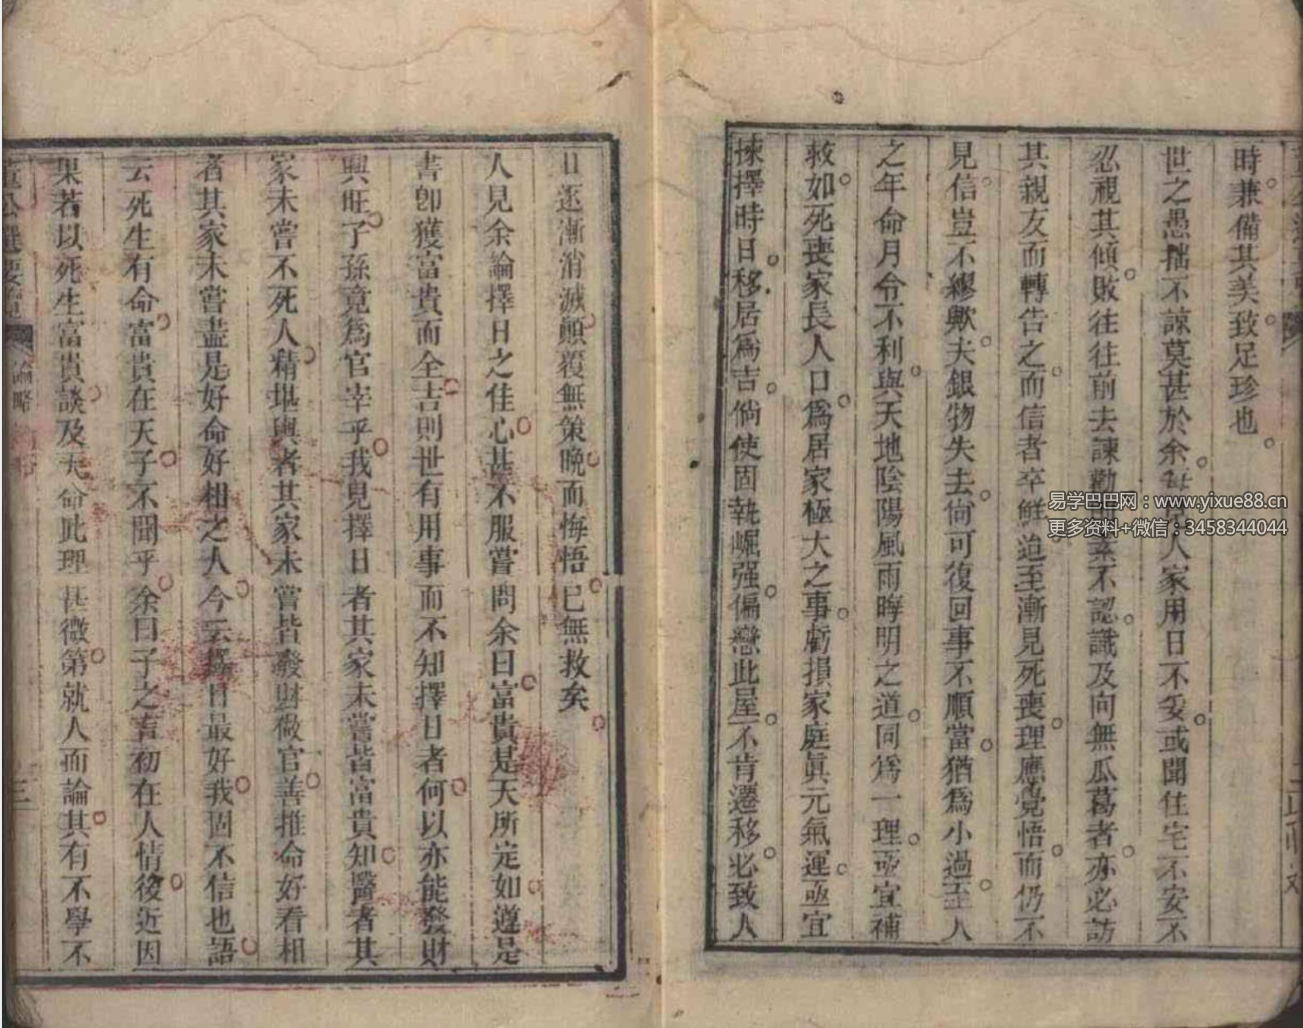 時兼備其美致足珍也
世之愚拙不諒莫甚於余每見人家用日不妥或聞住宅不安不
忍視其傾敗往往前去諫勸即素不認識及向無瓜葛者亦必訪
其親友而轉告之而信者卒鮮迨至漸見死喪理應覺悟而仍不
見信豈不繆歟夫銀物失去尙可復回事不順當猶爲小過至人
之年命月令不利與天地陰陽風雨晦明之道同爲一理亟宜補
救如死喪家長人口爲居家極大之事虧損家庭眞元氣運亟宜
揀擇時日移居爲吉倘使固執崛强偏戀此屋不肯遷移必致人
口逐漸消滅顛覆無策晩而悔悟已無救矣
人見余論擇日之佳心甚不服嘗問余曰富貴是天所定如遵是
書卽獲富貴而全吉則世有用事而不知擇日者何以亦能發財
興旺子孫竟爲官宰乎我見擇日者其家未嘗皆富貴知醫者其
家未嘗不死人精堪輿者其家未嘗皆發財做官善推命好看相
者其家未嘗盡是好命好相之人今云擇日最好我固不信也語
云死生有命富貴在天子不聞乎余曰子之言初在人情後近因
果若以死生富貴談及天命此理甚微第就人而論其有不學不
董公選要覽
論略
三
易学巴巴网：www.yixue88.cn
更多资料+微信：3458344044